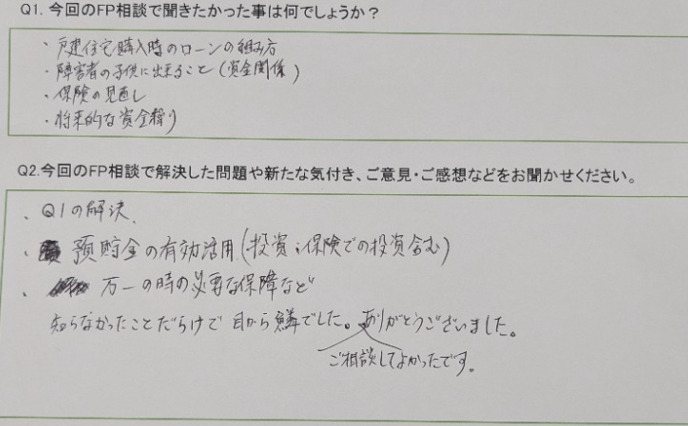 Q1. 今回のFP相談で聞きたかった事は何でしょうか？
・戸建住宅購入時のローンの組み方
・障害者の子供に出来ること(資金関係)
・保険の見直し
・将来的な資金繰り
Q2.今回のFP相談で解決した問題や新たな気付き、ご意見・ご感想などをお聞かせください。
・Q1の解決、
・預貯金の有効活用(投資;保険での投資含む)
・万一の時の必要な保障など
知らなかったことだらけで目から鱗でした。ありがとうございました。
ご相談してよかったです。